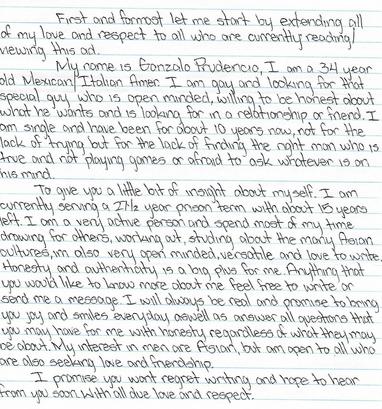 First and formost let me start by extending all
of my love and respect to all who are currently reading/
viewing this ad.
My name is Gonzalo Prudencio, I am a 34 year
old Mexican/Italian Amer. I am gay and looking for that
special guy who is open minded, willing to be honest about
what he wants and is looking for in a relationship or friend. I
am single and have been for about 10 years now, not for the
lack of trying but for the lack of finding the right man who is
true and not playing games or afraid to ask whatever is on
his mind.
To give you a little bit of insight about myself. I am
currently serving a 27½ year prison term with about 15 years
left. I am a very active person and spend most of my time
drawing for others, working out, studing about the many Asian
cultures, im also very open minded, versatile and love to write.
Honesty and authenticity is a big plus for me. Anything that
you would like to know more about me feel free to write or
send me a message I will always be real and promise to bring
you joy and smiles everyday aswell as answer all questions that
you may have for me with honesty regardless of what they may
be about. My interest in men are Asian, but am open to all who
are also seeking love and friendship.
I promise you wont regret writing and hope to hear
from you soon. With all due love and respect.